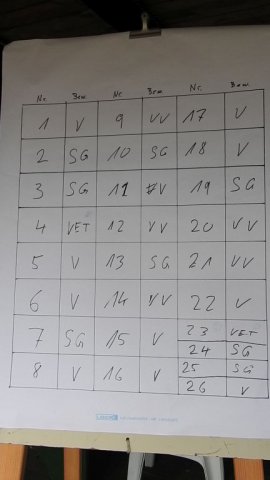 Nr. Bew. Nr. Bew. Nr. Bew.
1 V 9 VV 17 V
2 SG 10 SG 18 V
3 SG 11 V 19 SG
4 VET 12 VV 20 VV
5 V 13 SG 21 VV
6 V 14 VV 22 V
7 SG 15 V 23 VET
24 SG
8 V 16 V 25 SG
26 V